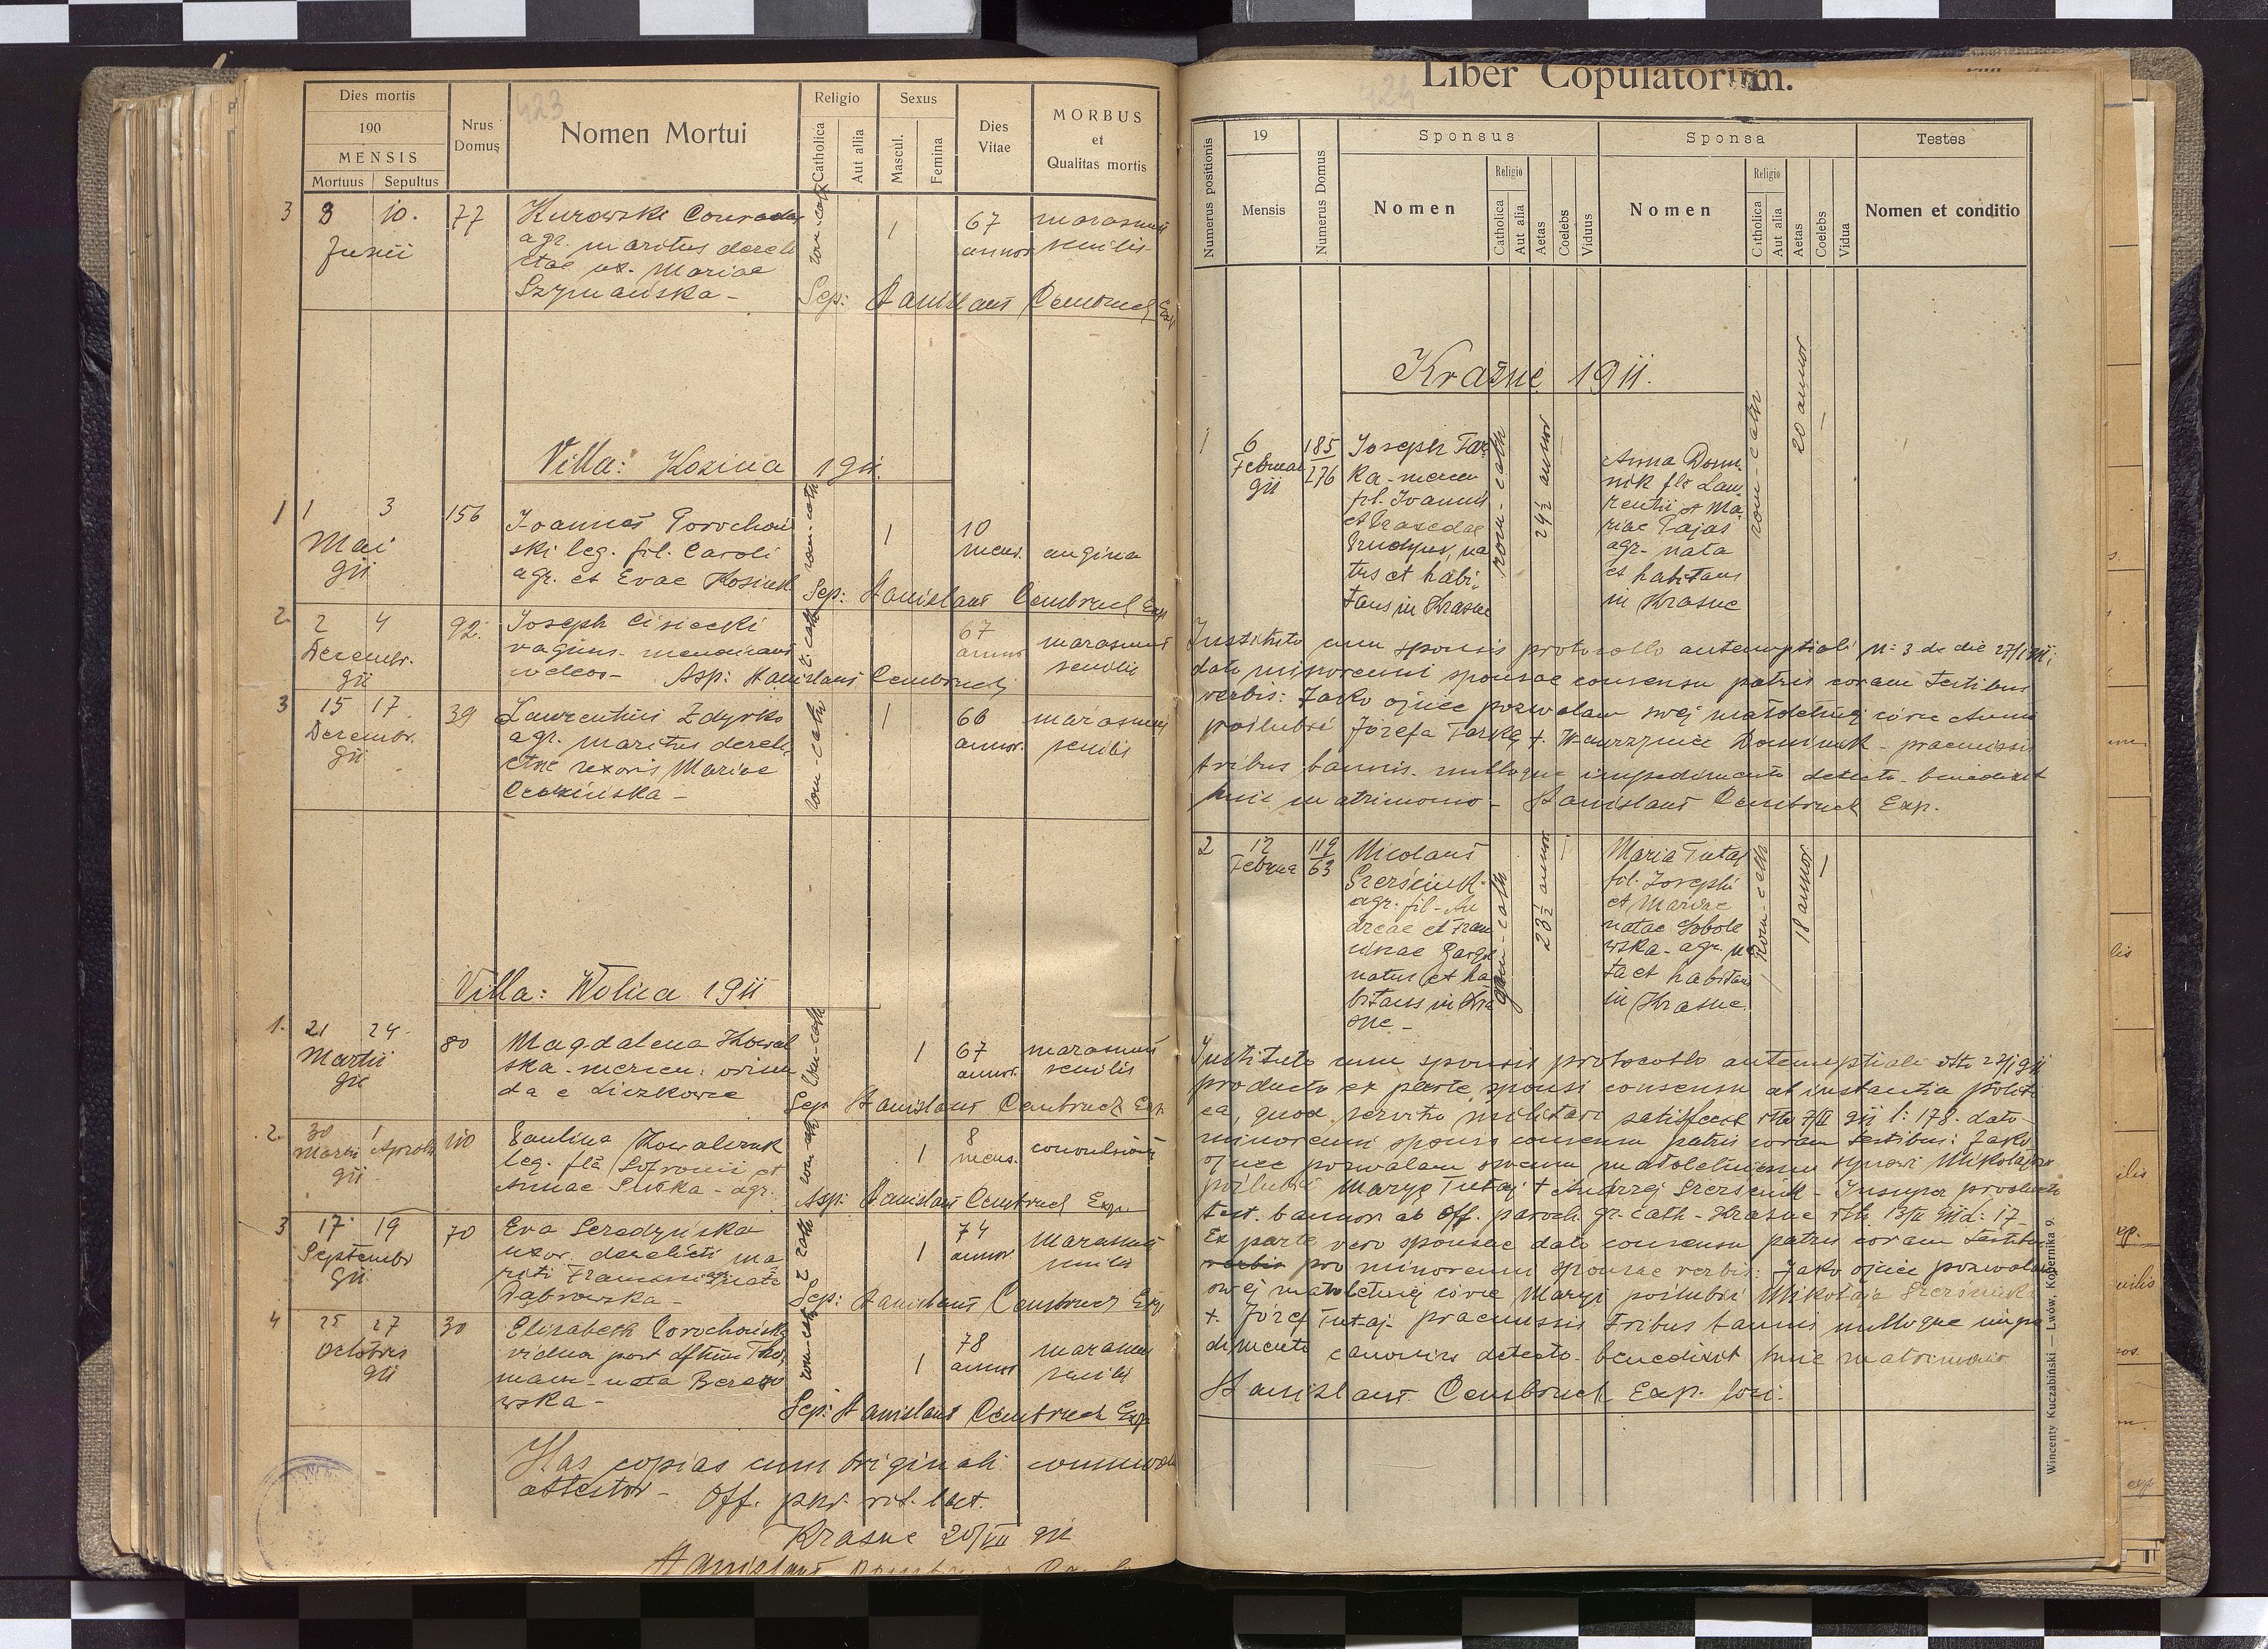 423
Dies mortis
190
MENSIS
Mortuus Sepultus
Nrus Domus
Nomen Mortui
Religio
Catholica
Aut allia
Sexus
Mascul.
Femina
Dies Vitae
MORBUS
et
Qualitas mortis
3 8 10. 77 Kurowski Conradus rom-cath 1 67 marasmus
Junii agr. maritus dereli annor senilis
ctae ux. Mariae
Szymańska - Sep: Stanislaus Cembruch Exp
Villa: Kozina 1911.
1 1 3 156 Joannes Porochoń rom-cath 1 10
Mai ski leg. fil. Caroli mens. angina
911 agr. et Evae Kosińsk
Sep: Stanislaus Cembruch Exp
2 2 4 92. Joseph Cisiecki r. cath 67 marasmus
Decembr. vagus annor senilis
911 Asp: Stanislaus Cembruch
3 15 17 39 Laurentius Zdyrko rom-cath 1 66 marasmus
Decembr. agr. maritus dereli annor. senilis
911 ctae uxoris Mariae
Villa: Wolica 1911
1. 21 24 80 Magdalena Kowal rom-cath 1 67 marasmus
Martii ska - annor. senilis
911 da e Liczkowce
Sep Stanislaus Cembruch Exp.
2. 30 1 110 Paulina Kowalczuk rom cath 1 8 convulsiones
Martii Aprilis leg. fla Sofronii et mens.
911 Annae Puska - agr.
Asp: Stanislaus Cembruch Exp.
3 17 19 70 Eva Seredyńska r cath 1 74 marasmus
Septembr uxor derelicti ma annor. senilis
911 riti nata
Dąbrowska - Sep: Stanislaus Cembruch Exp
4 25 27 30 Elisabeth Porochońska rom-cath 1 78 marasmus
Octobris vidua post Tho annor senilis
911 mam - nata Berezo
wska - Sep: Stanislaus Cembruch Exp
Has copias cum originali
attestor - Off. par. rit. lat.
Krasne 20/VII 912
Stanislaus
424
Liber Copulatorum.
Numerus positionis
19
Mensis
Numerus Domus
Sponsus
Nomen
Religio
Catholica
Aut alia
Aetas
Coelebs
Viduus
Sponsa
Nomen
Religio
Catholica
Aut alia
Aetas
Coelebs
Vidua
Testes
Nomen et conditio
Kraśne 1911.
1 6 185 Joseph Tar rom-cath 24½ annor Anna Domi rom-cath 20 annor
Februar 276 ka - mercen nik fla Lau
911 fil. Joannis rentii et Ma
et Praxedae riae Pajas
na agr. nata
tus et habi et habitans
tans in Krasne in Krasne
Instituto cum sponsis protocollo antenuptiali N: 3 de die 27/I 911;
dato minorenni sponsae consensu patris coram testibus
verbis: Jako ojciec pozwalam swej małoletniej córce Annie
poślubić Józefa Tarkę + Wawrzyniec Dominik - praemissis
tribus bannis - nulloque impedimento detecto - benedixit
huic matrimonio - Stanislaus Cembruch Exp.
2 12 119 Nicolaus gr-cath 23½ annor Maria Tutaj Rom-cath 18 annor
Februa 63 Szerściuk fil. Josephi
agr. fil - An et Mariae
dreae et Fran natae Sobole
ciscae wska - agr. na
natus et ha ta et habitans
bitans in Kra in Krasne
sne -
Instituto cum sponsis protocollo antenuptiali dtto 27/I 911
producto ex parte sponsi consensu ab instantia politi
ca, quod servitio militari satisfecit dtto 7/II 911 l: 178. dato
minorenni sponso consensu patris coram testibus: Jako
ojciec pozwalam swemu małoletniemu synowi Mikołajowi
poślubić Maryę Tutaj + Andrzej Szerściuk - Insuper producto
test. bannor ab Off. paroch. gr. cath - Krasne dtto 13/II 911 l: 17 -
Ex parte vero sponsae dato consensu patris coram testibus
verbis pro minorenni sponsae verbis: Jako ojciec pozwalam
swej małoletniej córce Maryi poślubić Mikołaja Szerściuka
+ Józef Tutaj - praemissis tribus bannis nulloque impe
dimento canonico detecto - benedixit huic matrimonio
Stanislaus Cembruch Exp. loci.
Wincenty Kuczabiński — Lwów, Kopernika 9.